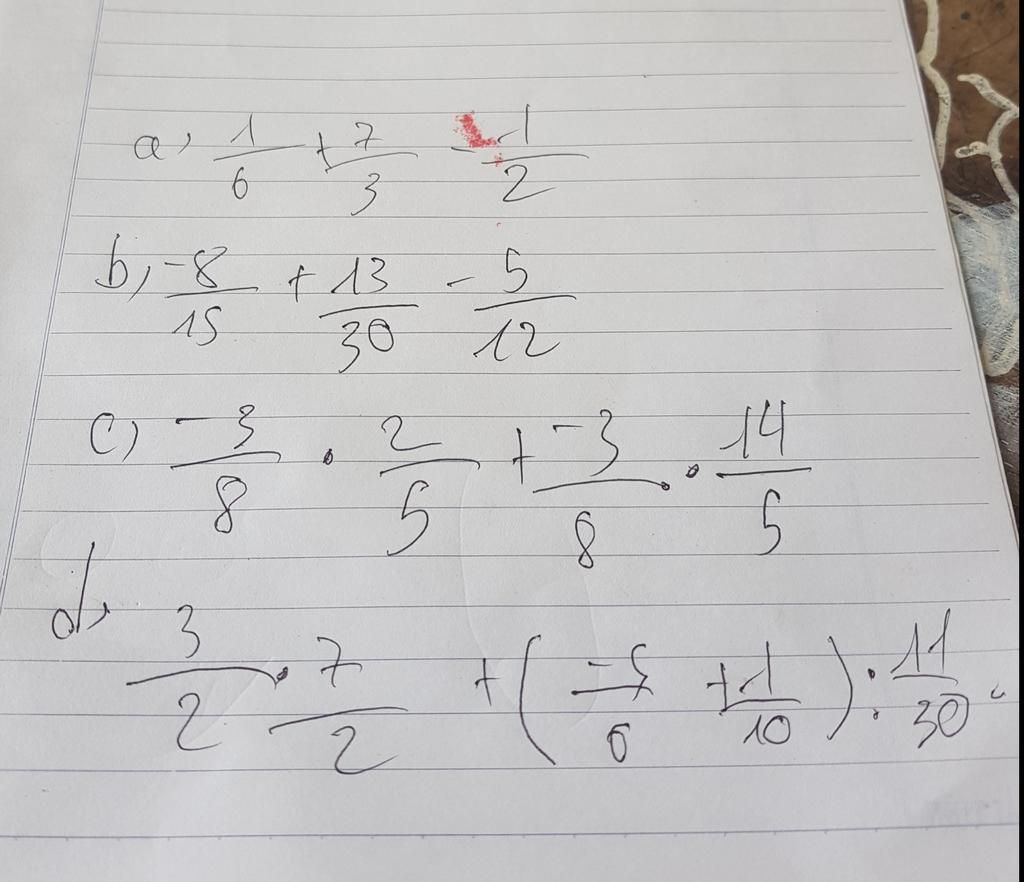 a, 1/6 + 7/3 - 1/2
b, -8/15 + 13/30 - 5/12
c) -3/8 . 2/5 + -3/8 . 14/5
d, 3/2 . 7/2 + ( -5/6 + 1/10 ) : 11/30